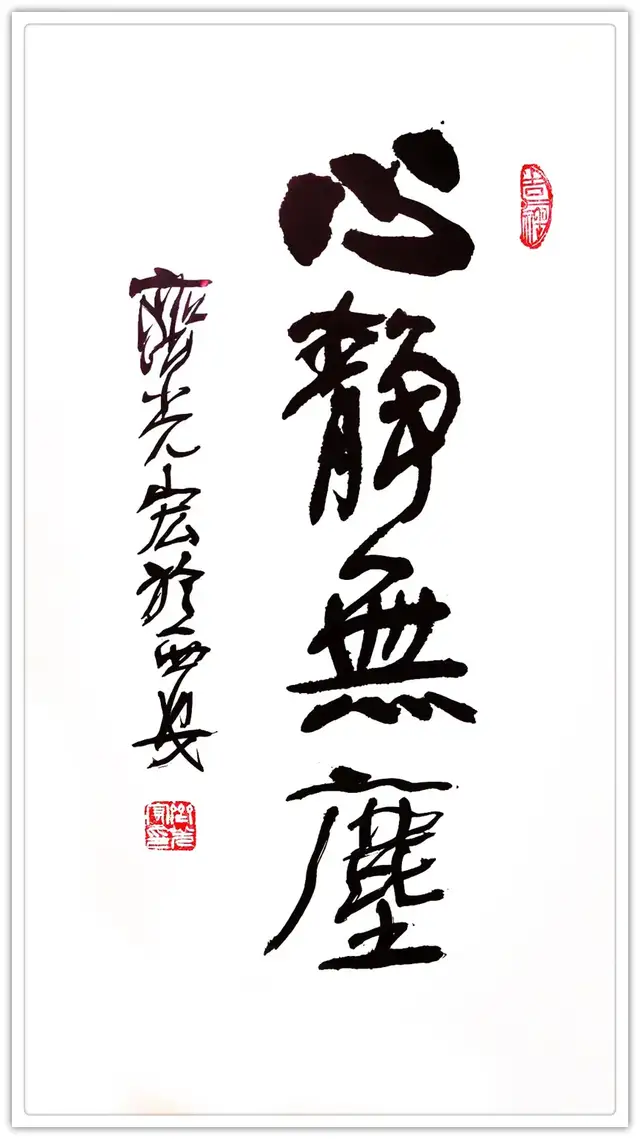 心靜無塵
齊光宏於西安